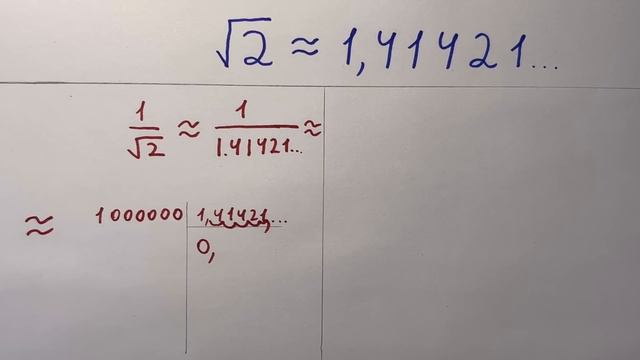 √2 ≈ 1,41421...
1/√2 ≈ 1/1.41421... ≈
≈ 1000000 | 1,41421,...
0,